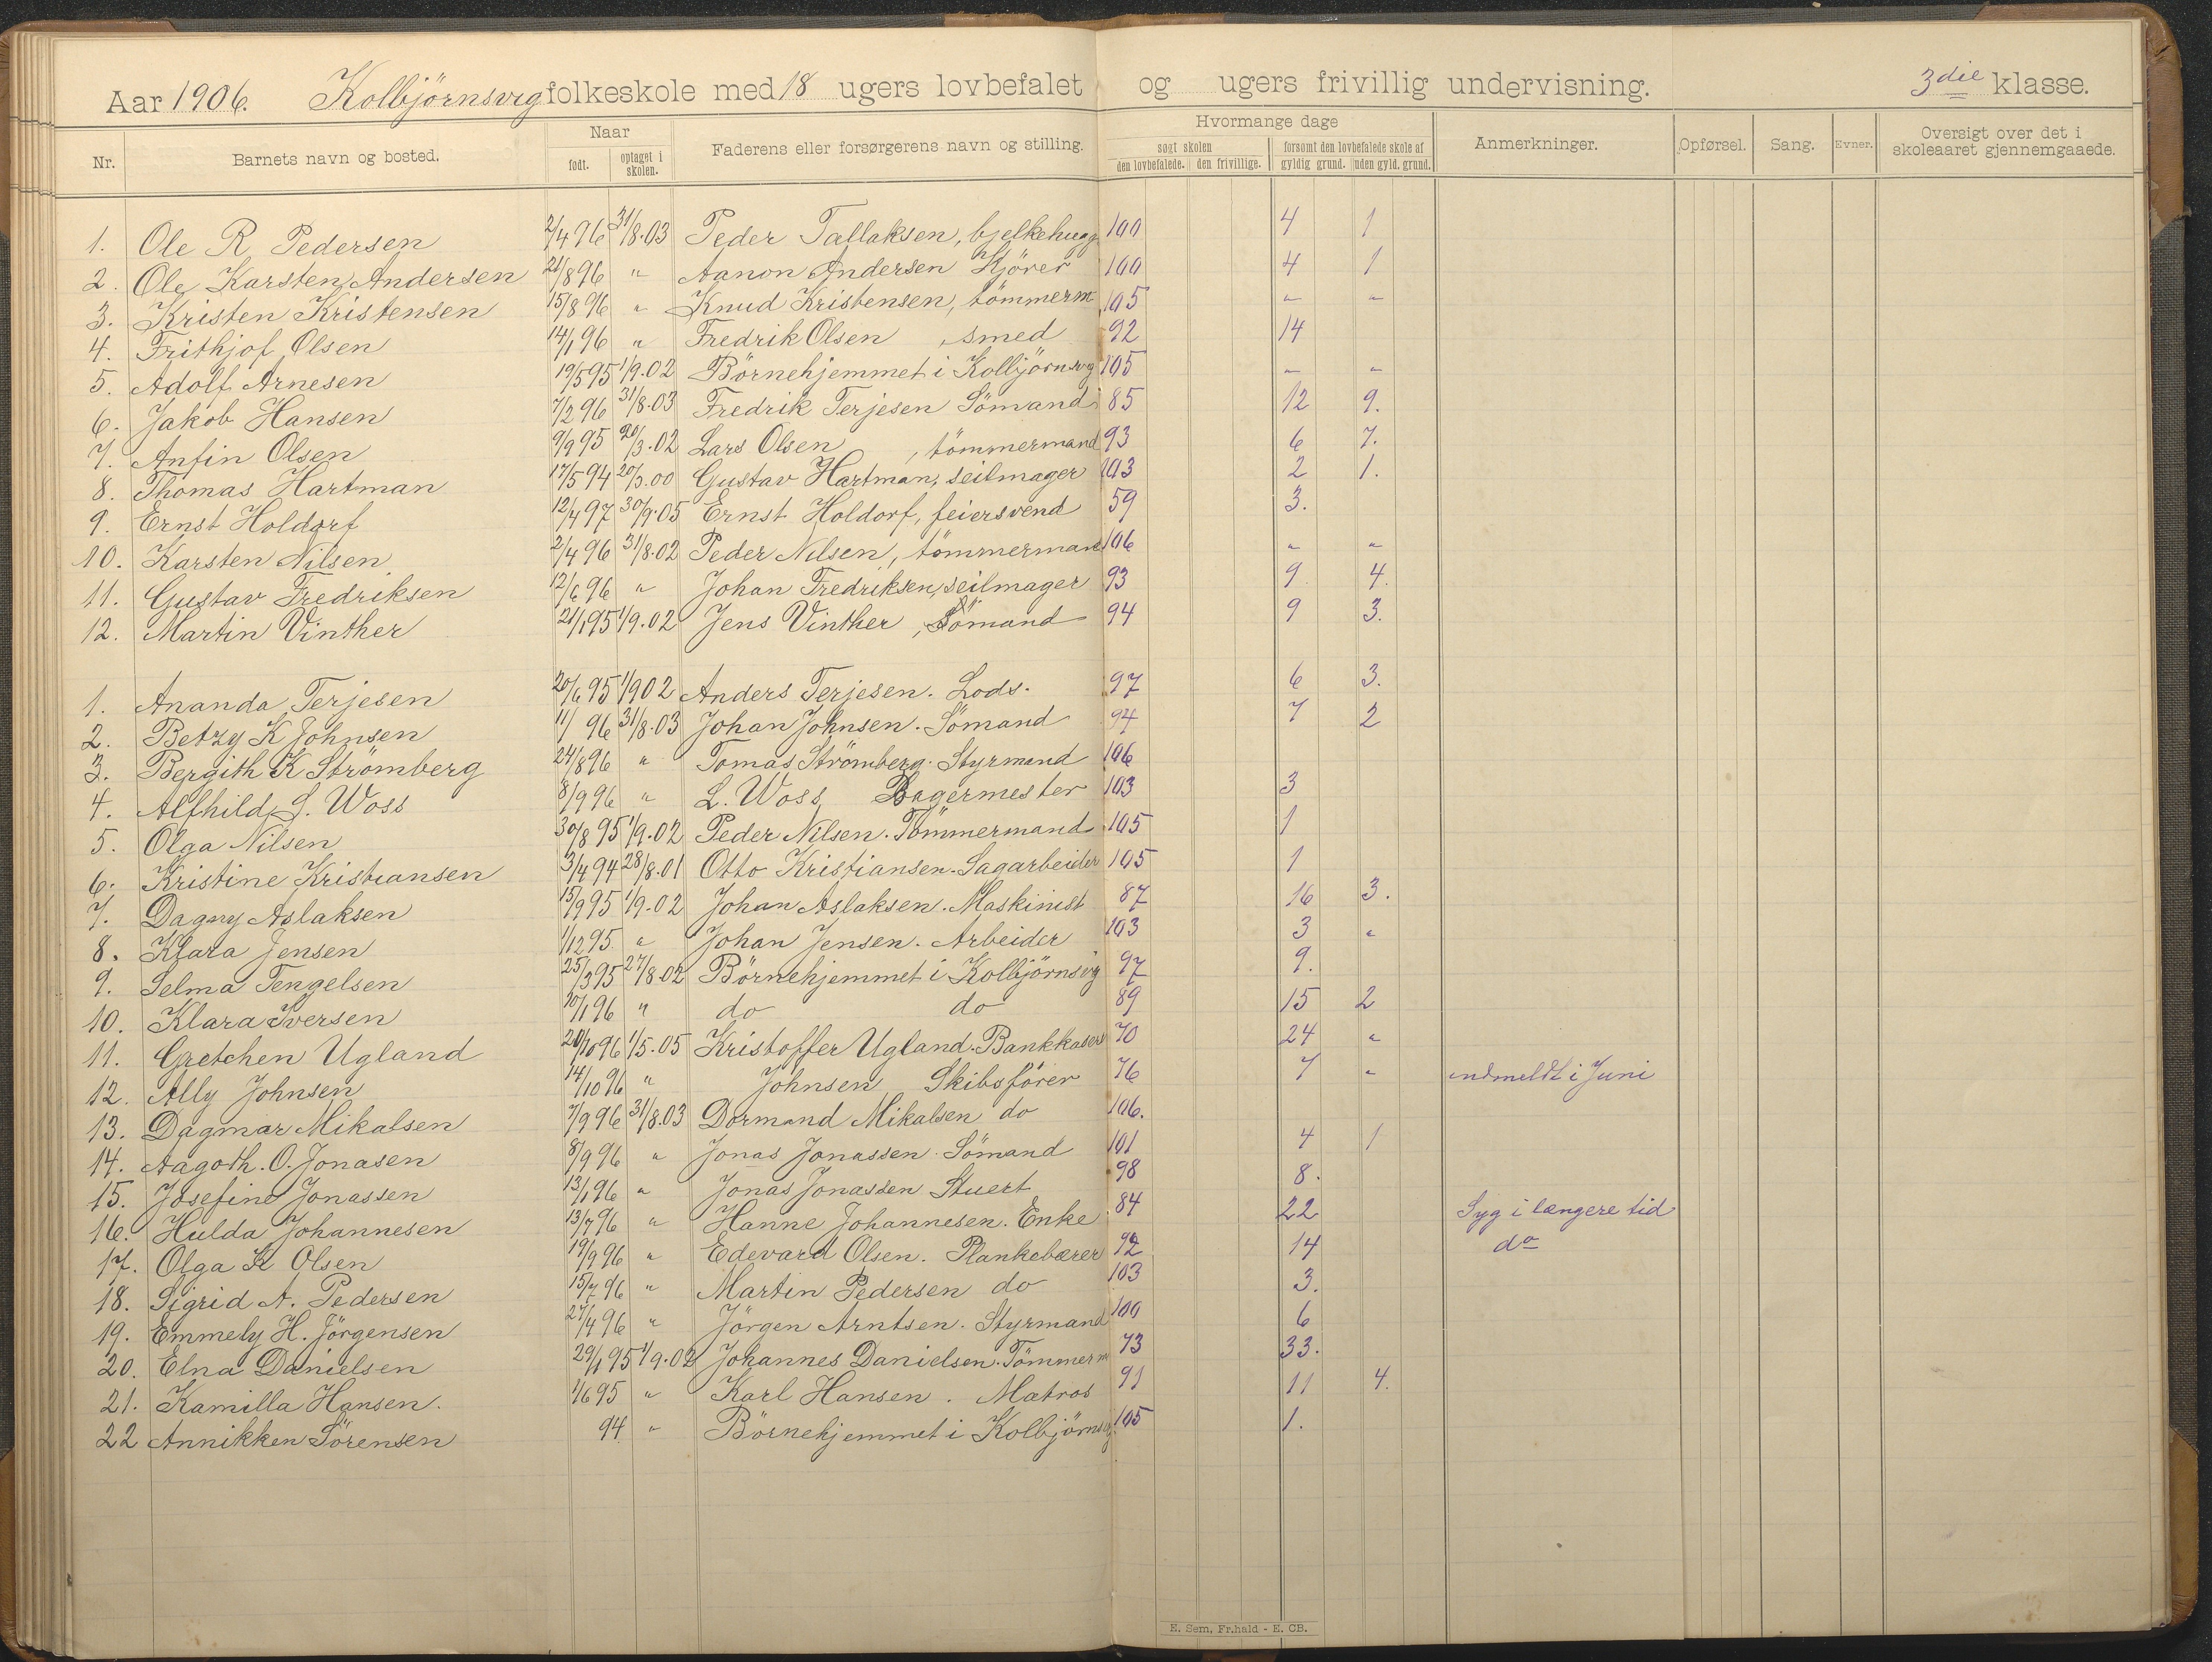 Aar 1906. Kolbjörnsvig folkeskole med 18 ugers lovbefalet og ugers frivillig undervisning. 3die klasse.
Nr. Barnets navn og bosted. Naar født. optaget i skolen. Faderens eller forsørgerens navn og stilling. Hvormange dage søgt skolen den lovbefalede. den frivillige. forsømt den lovbefalede skole af gyldig grund. uden gyld. grund. Anmerkninger. Opførsel. Sang. Evner. Oversigt over det i skoleaaret gjennemgaaede.
1. Ole R Pedersen 2/4 96 31/8.03 Peder Tallaksen, bjelkehugg 100 4 1
2. Ole Karsten Andersen 21/8 96 " Aanon Andersen Kjörer 100 4 1
3. Kristen Kristensen 15/8 96 " Knud Kristensen, tömmerm 105 " "
4. Frithjof Olsen 14/1 96 " Fredrik Olsen , smed 92 14
5. Adolf Arnesen 19/5 95 1/9.02 Börnehjemmet i Kolbjörnsvig 105 " "
6. Jakob Hansen 7/2 96 31/8.03 Fredrik Terjesen Sömand 85 12 9.
7. Anfin Olsen 9/9 95 20/3.02 Lars Olsen , tömmermand 93 6 7.
8. Thomas Hartman 17/5 94 20/3.00 Gustav Hartman, seilmager 103 2 1.
9. Ernst Holdorf 12/4 97 30/9.05 Ernst Holdorf, feiersvend 59 3.
10. Karsten Nilsen 2/4 96 31/8.02 Peder Nilsen, tömmermand 106 " "
11. Gustav Fredriksen 12/6 96 " Johan Fredriksen, seilmager 93 9. 4.
12. Martin Vinther 21/1 95 1/9.02 Jens Vinther, Sömand 94 9 3.
1. Ananda Terjesen 20/6 95 1/9 02 Anders Terjesen. Lods. 97 6 3.
2. Betzy K Johnsen 11/ 96 31/8.03 Johan Johnsen. Sömand 94 7 2
3. Bergith K Strömberg 24/8 96 " Tomas Strömberg. Styrmand 106
4. Alfhild S. Woss 8/9 96 " L. Woss Bagermester 103 3
5. Olga Nilsen 30/8 95 1/9.02 Peder Nilsen. Tömmermand 105 1
6. Kristine Kristiansen 3/4 94 28/8.01 Otto Kristiansen. Sagarbeider 105 1
7. Dagny Aslaksen 15/9 95 1/9.02 Johan Aslaksen. Maskinist 87 16 3.
8. Klara Jensen 1/12 95. " Johan Jensen. Arbeider 103 3 "
9. Selma Tengelsen 25/3 95 27/8.02 Börnehjemmet i Kolbjörnsvig 97 9.
10. Klara Iversen 10/1 96 " do do 89 15 2
11. Gretchen Ugland 20/10 96 1/5.05 Kristoffer Ugland. Bankkaserer 70 24 "
12. Ally Johnsen 14/10 96 " Johnsen Skibsförer 76 7 " indmeldt i Juni
13. Dagmar Mikalsen 7/9 96 31/8.03 Dormand Mikalsen do 106.
14. Aagoth. O. Jonasen 8/9 96 " Jonas Jonassen. Sömand 101 4 1
15. Josefine Jonassen 13/1 96 " Jonas Jonassen Stuert 98 8.
16. Hulda Johannesen 13/7 96 " Hanne Johannesen. Enke 84 22 Syg i længere tid
17. Olga K Olsen 19/9 96 " Edevard Olsen. Plankebærer 92 14 do
18. Sigrid A. Pedersen 15/7 96 " Martin Pedersen do 103 3.
19. Emmely H. Jörgensen 27/4 96 " Jörgen Arntsen. Styrmand 100 6
20. Elna Danielsen 29/1 95 1/9.02 Johannes Danielsen. Tömmerm 73 33.
21. Kamilla Hansen. 1/6 95 " Karl Hansen. Matros 91 11 4.
22 Annikken Sörensen 94 " Börnehjemmet i Kolbjörnsvig 105 1.
E. Sem, Fr.hald - E. CB.